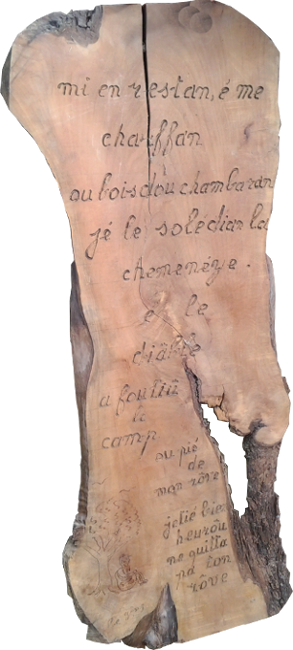 mi en restan, é me
chaffan
ou bois dóu chambaran
jé le solédian la
chemenéye.
é le
diâble
a foutiu
le
camp
ou pié
de
mon rôve
jelie bien
heuroû
ne quitta
pa ton
rôve